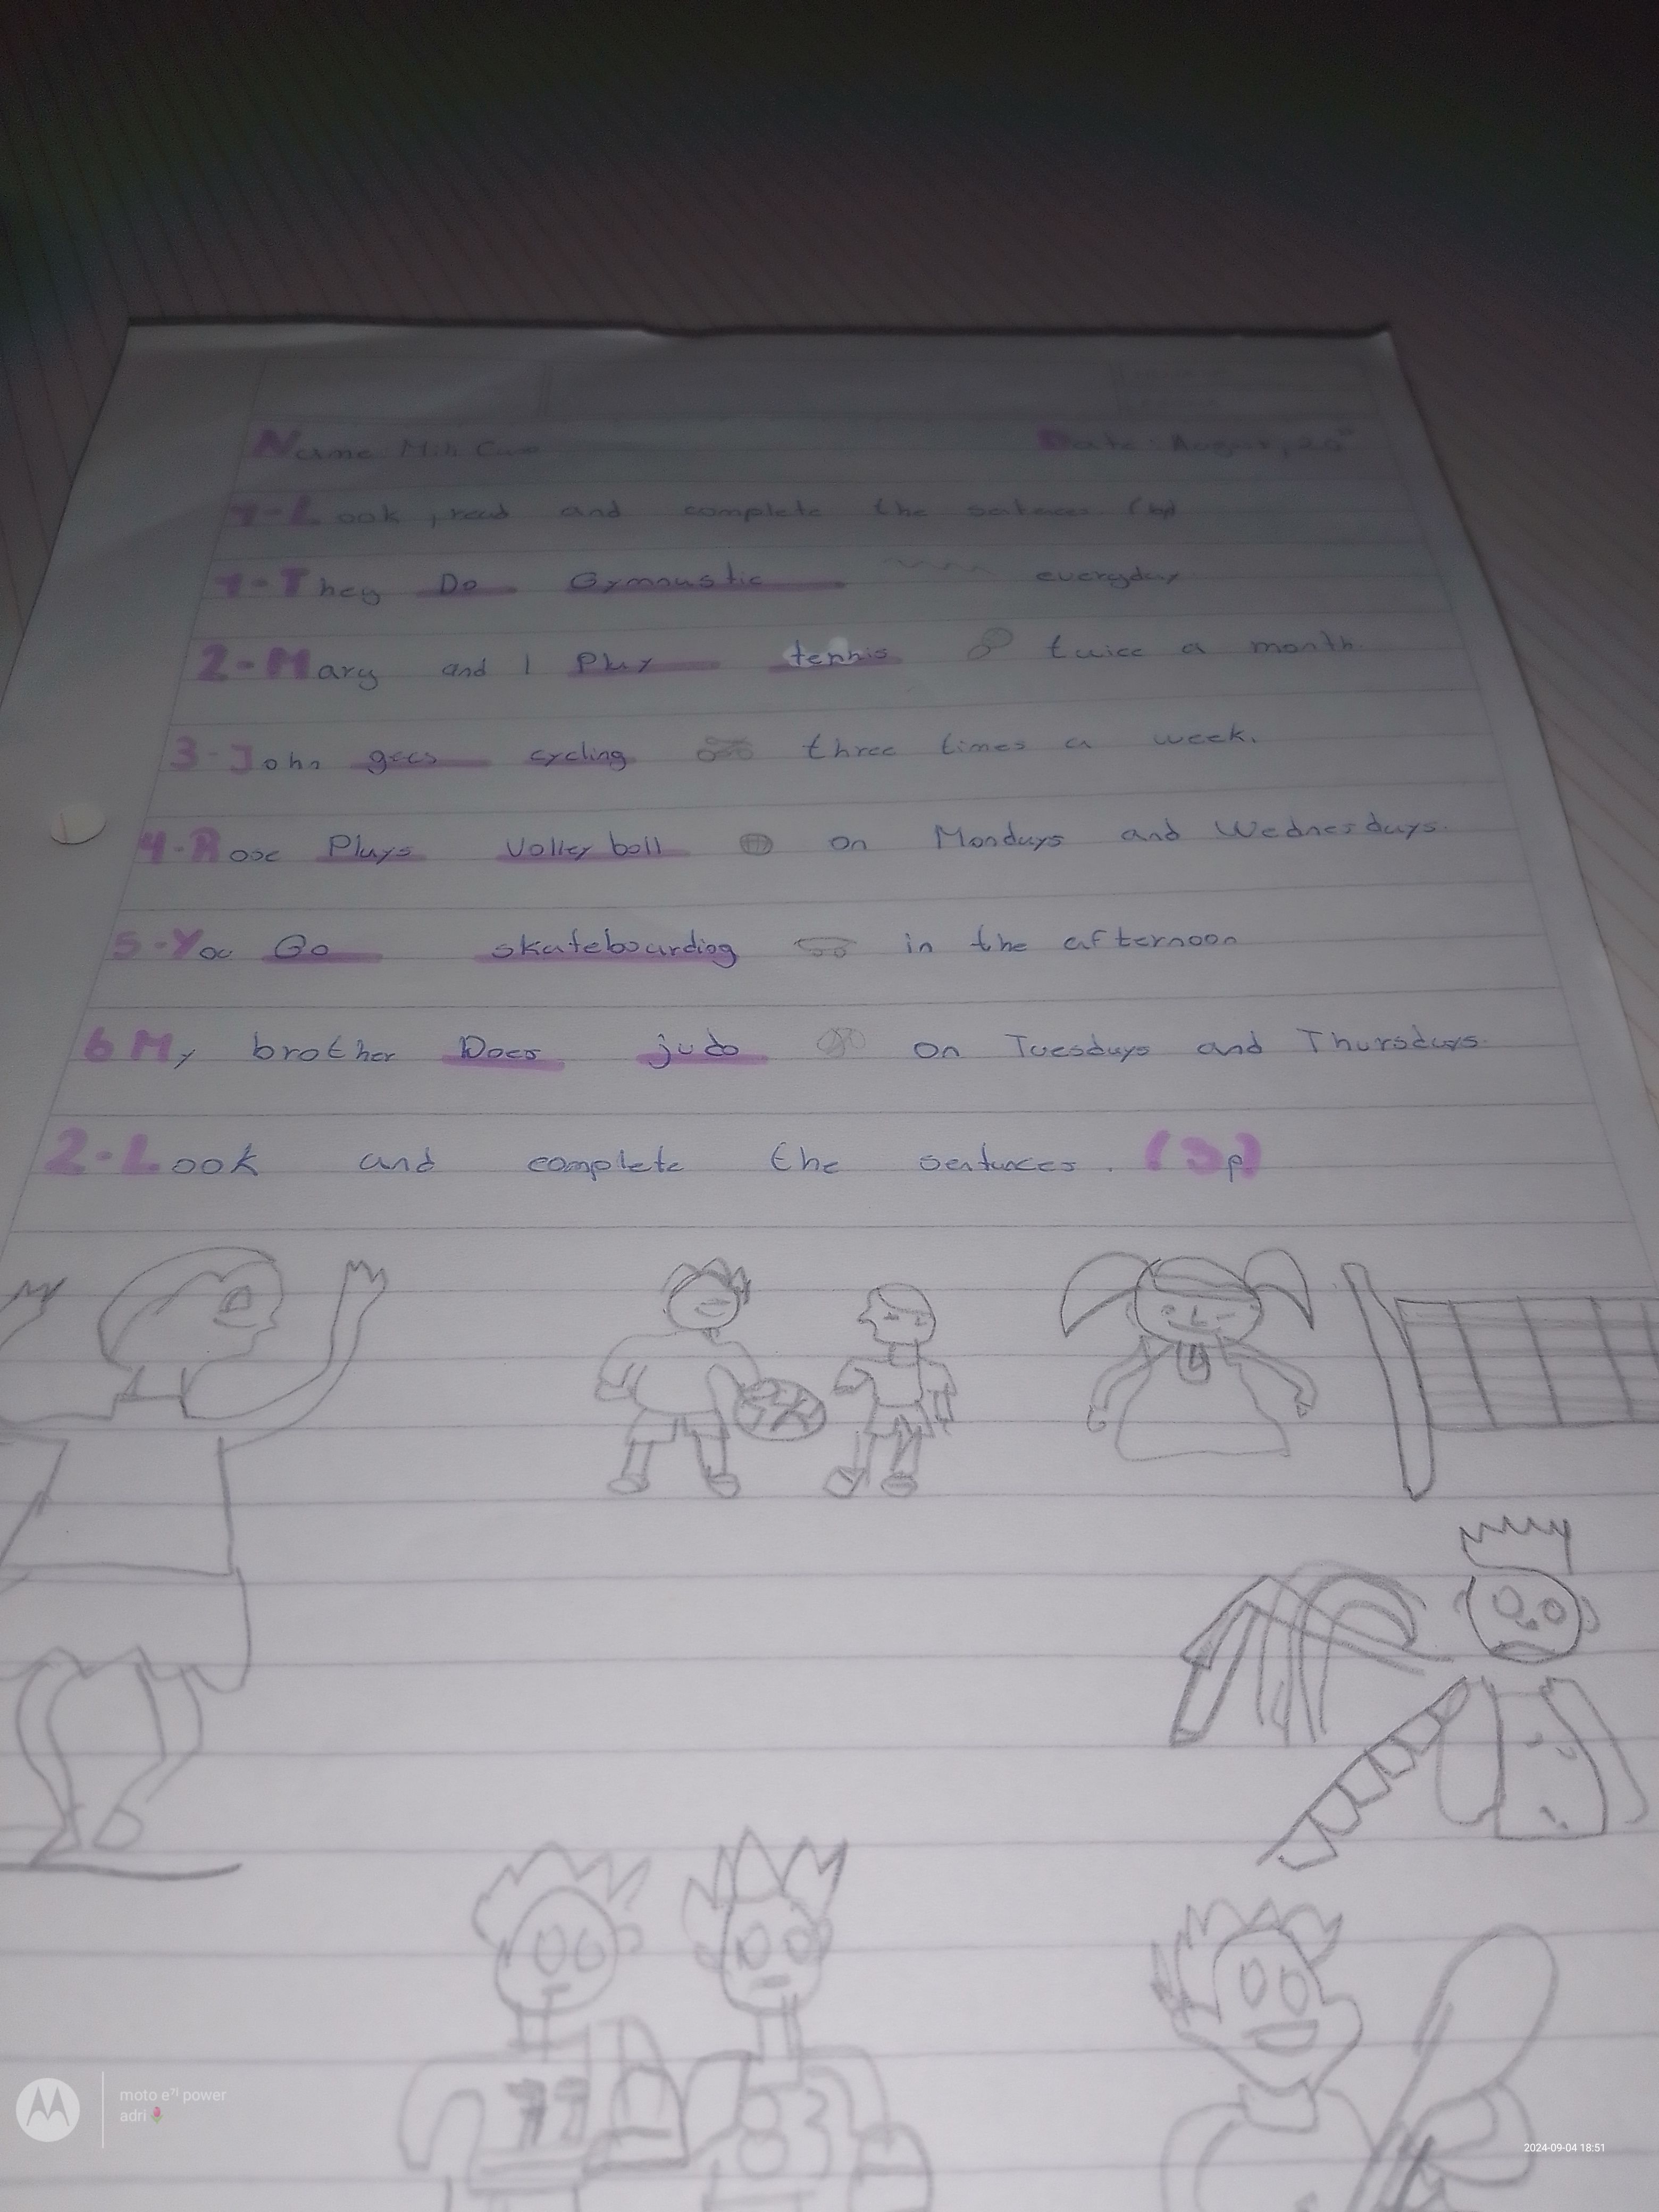 Name Mili Date: August, 20
1-Look, read and complete the sentences. (6p)
1-They Do Gymnastic everyday
2-Mary and I Play tennis twice a month.
3-John goes cycling three times a week.
4-Rose Plays Volley ball on Mondays and Wednesdays.
5-You Go skateboarding in the afternoon
6 My brother Does judo on Tuesdays and Thursdays.
2-Look and complete the sentences. (3p)
moto e⁷ⁱ power
adri🌷
2024-09-04 18:51